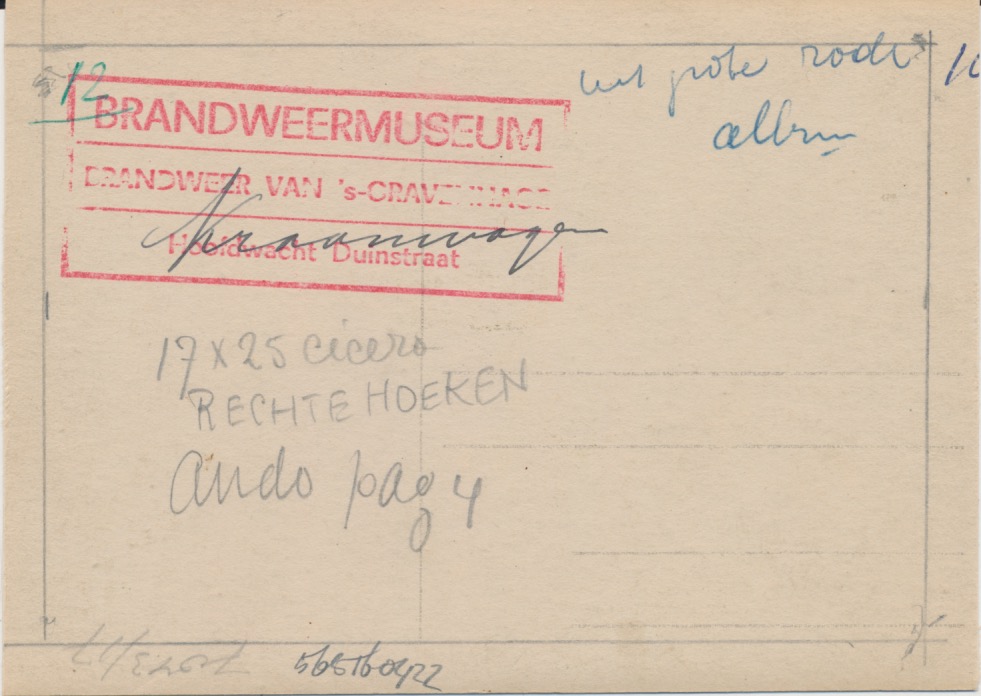 12
uit grote rode
album
BRANDWEERMUSEUM
BRANDWEER VAN 's-GRAVENHAGE
Hoofdwacht Duinstraat
Kraanwagen
17 x 25 cicero
RECHTE HOEKEN
Ando pag 4